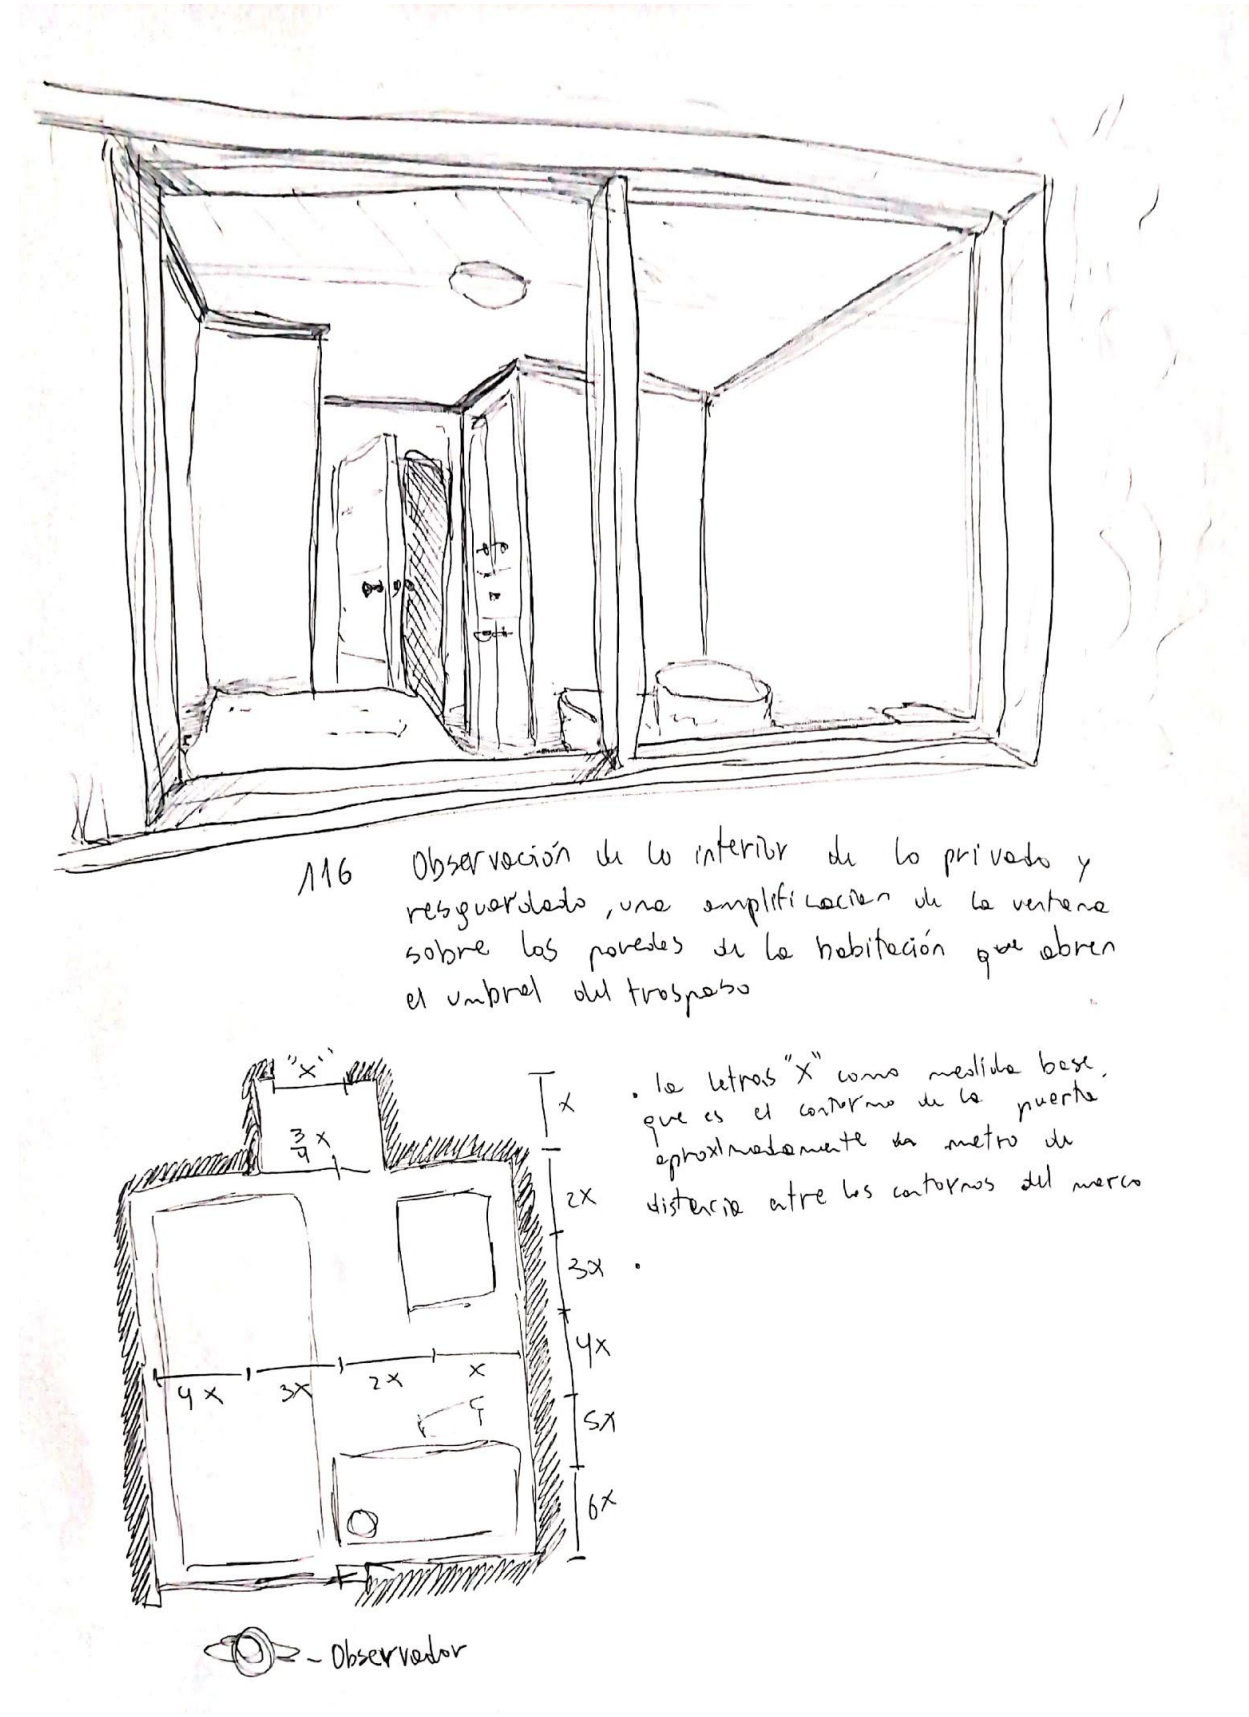 116 Observación de lo interior de lo privado y
resguardado, una amplificacion de la ventana
sobre las paredes de la habitación que abren
el umbral del traspaso
"x"
3/4 x
x
2x
3x
4x
5x
6x
4x 3x 2x x
. la letras "x" como medida base,
que es el contorno de la puerta
aproximadamente un metro de
distancia entre los contornos del marco
.
- Observador